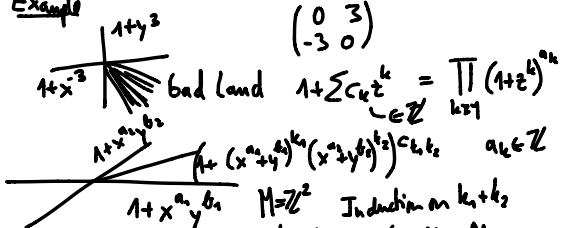 Example
1+y^3
( 0 3
-3 0 )
1+x^{-3}
bad land
1+∑c_k z^k = ∏_{k≥1} (1+z^k)^{a_k}
∈ℤ
a_k∈ℤ
1+x^{a_2}y^{b_2}
(1+(x^{a_1}+y^{b_1})^{k_1}(x^{a_2}+y^{b_2})^{k_2})^{c_{k_1k_2}}
1+x^{a_1}y^{b_1}
M=ℤ^2
Induction on k_1+k_2